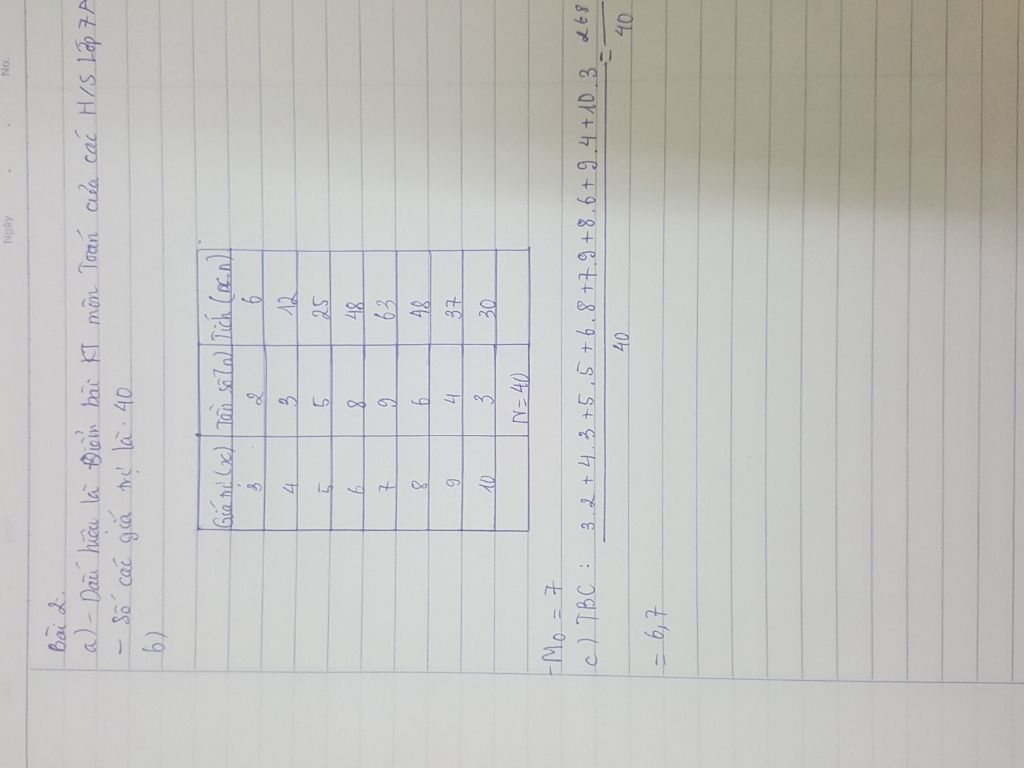 Ngày . . No.
Bài 2.
a) - Dấu hiệu là Điểm bài KT môn Toán của các H/S Lớp 7A
- Số các giá trị là: 40
b)
Giá trị (x) Tần số (n) Tích (x.n)
3 2 6
4 3 12
5 5 25
6 8 48
7 9 63
8 6 48
9 4 37
10 3 30
N=40
- Mo = 7
c) TBC : 3.2+4.3+5.5+6.8+7.9+8.6+9.4+10.3 = 268
40 40
= 6,7